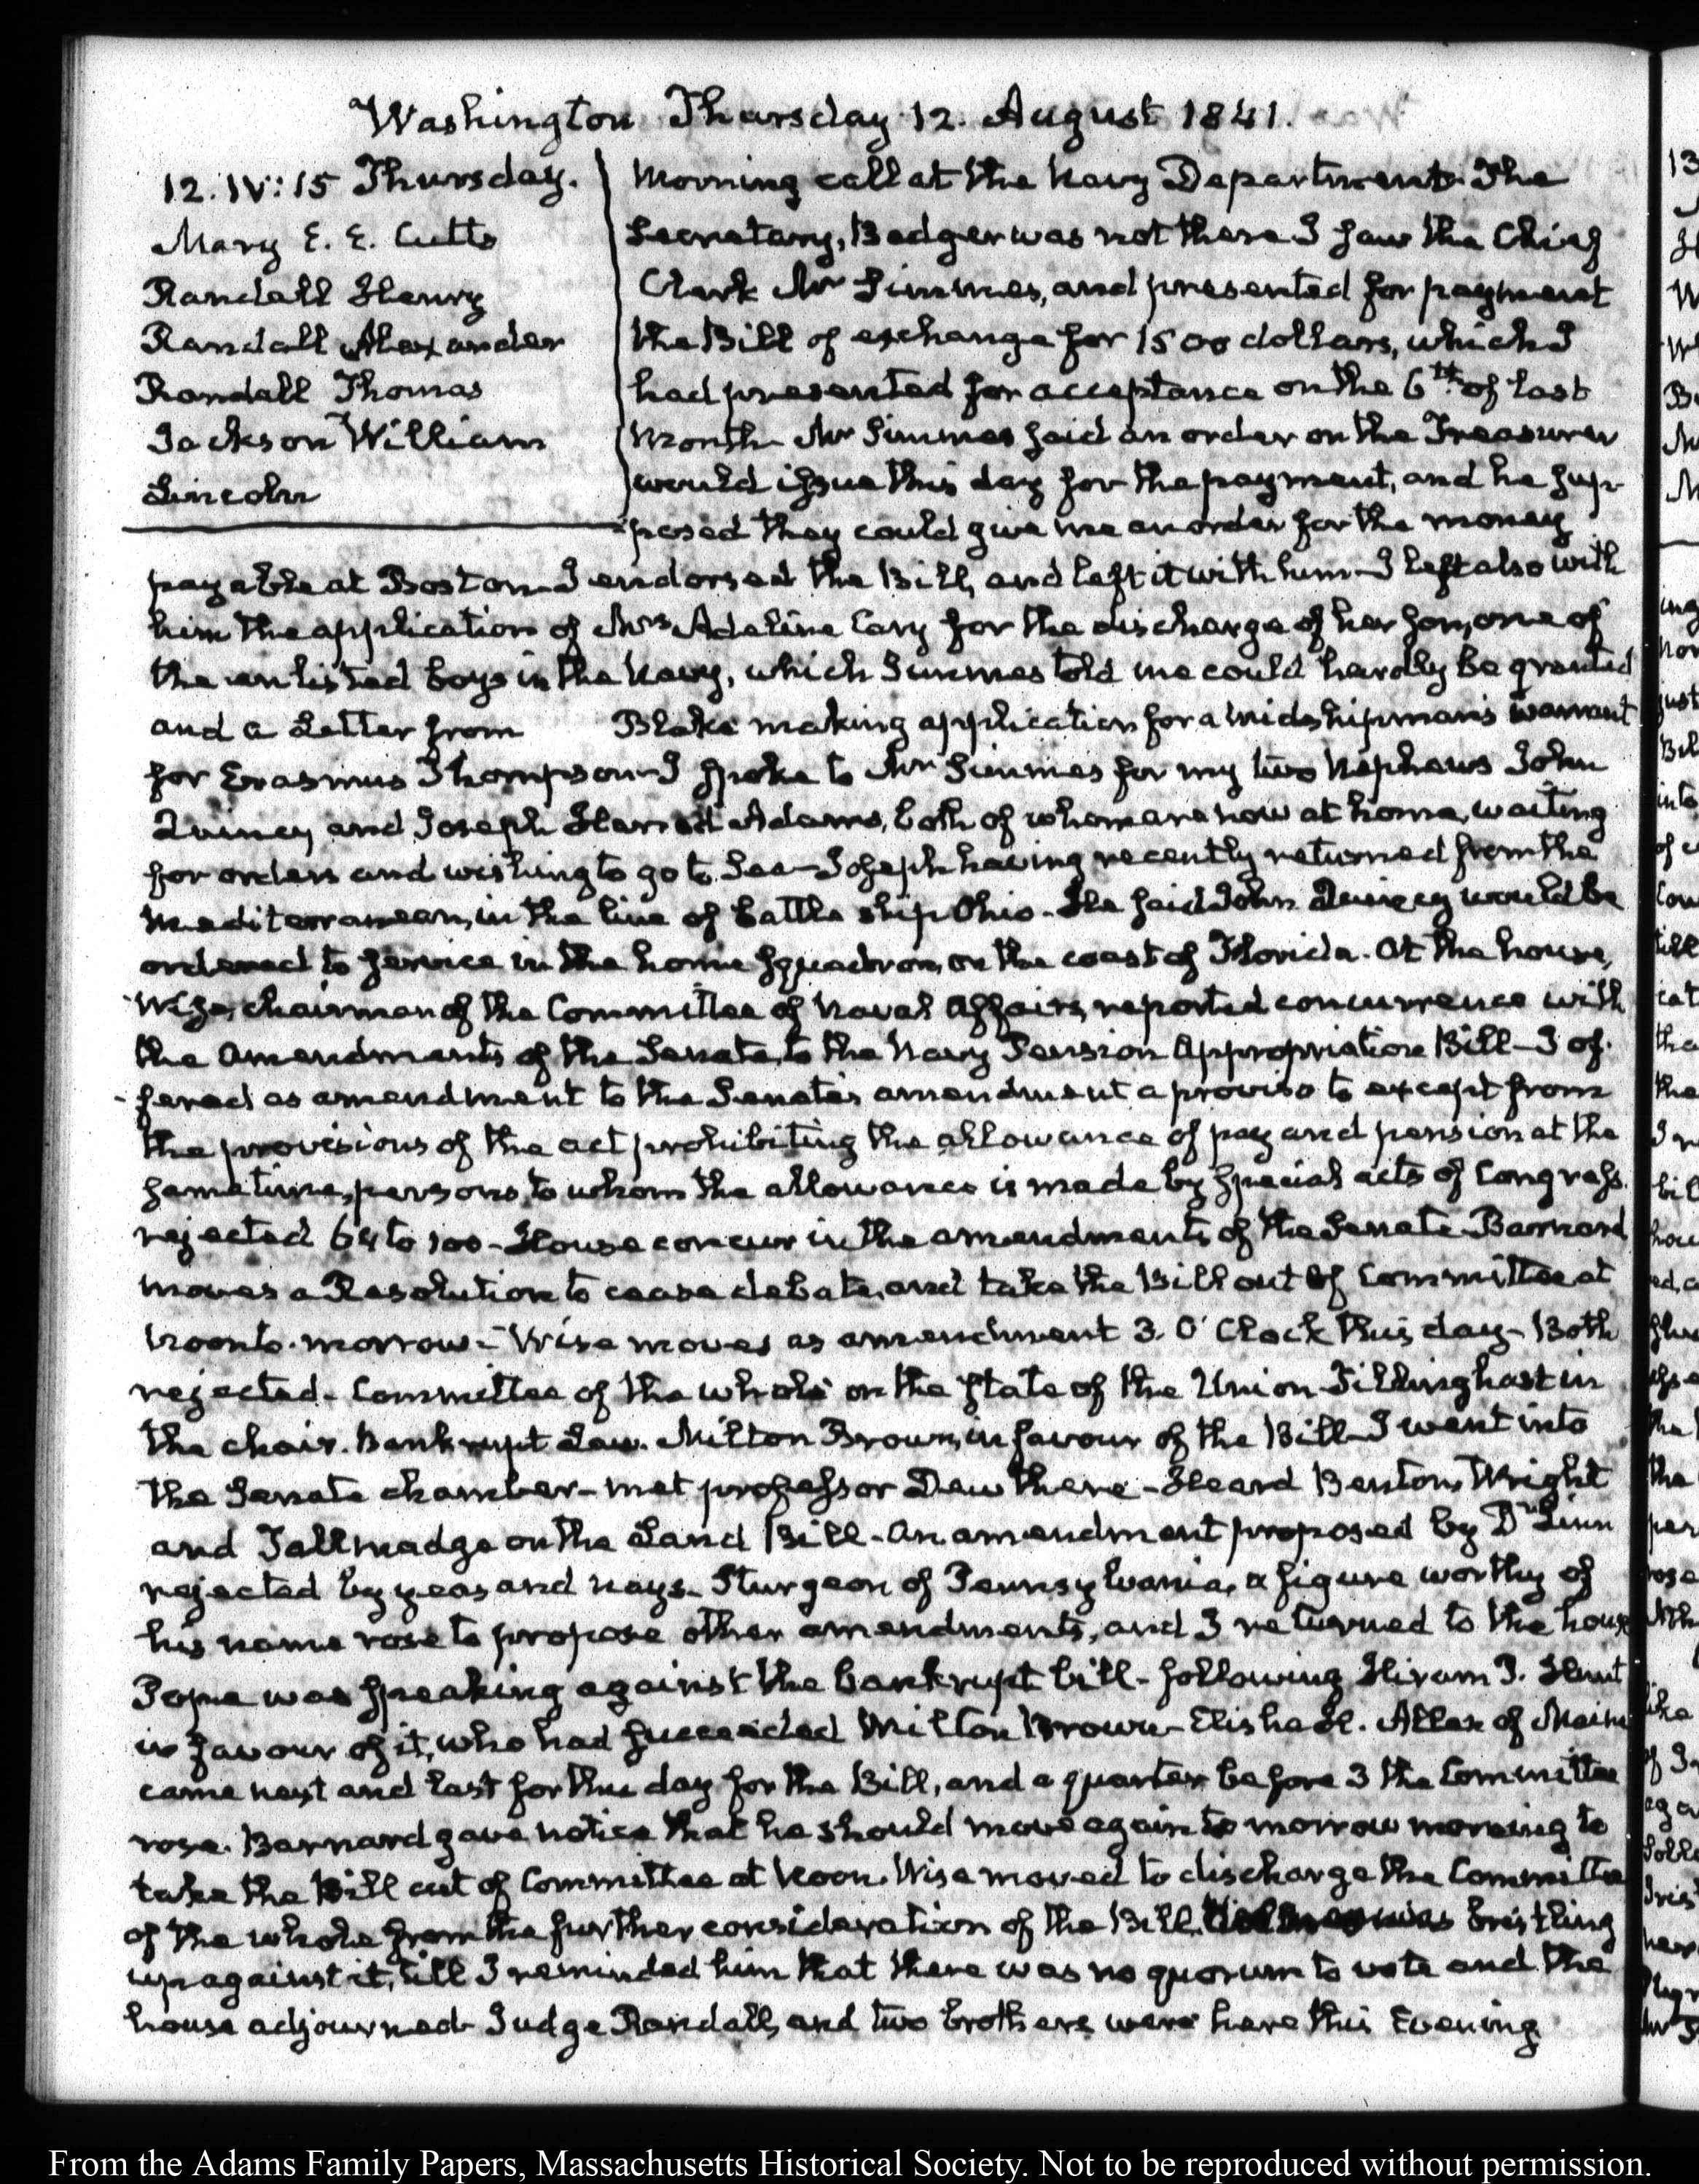 Washington Thursday 12. August 1841.
12. IV:15 Thursday.
Mary E. E. Cutts
Randall Henry
Randall Alexander
Randall Thomas
Jackson William
Lincoln
Morning call at the Navy Department. The
Secretary, Badger was not there I saw the Chief
Clerk Mr Simmes, and presented for payment
the Bill of exchange for 1500 dollars, which I
had presented for acceptance on the 6th of last
month. Mr Simmes said an order on the Treasurer
would issue this day for the payment, and he sup-
posed they could give me an order for the money
payable at Boston—I endorsed the Bill, and left it with him—I left also with
him the application of Mrs Adeline Cary for the discharge of her son, one of
the enlisted boys in the Navy, which Simmes told me could hardly be granted
and a Letter from Blake making application for a midshipman's warrant
for Erasmus Thompson—I spoke to Mr Simmes for my two Nephews John
Quincy and Joseph Harrod Adams, both of whom are now at home, waiting
for orders and wishing to go to Sea—Joseph having recently returned from the
Mediterranean, in the line of battle ship Ohio. He said John Quincy would be
ordered to service in the home squadron, on the coast of Florida. At the house,
Wise, chairman of the Committee of Naval Affairs, reported concurrence with
the Amendments of the Senate, to the Navy Pension Appropriation Bill—I of-
fered as amendment to the Senate's amendment a proviso to except from
the provisions of the act prohibiting the allowance of pay and pension at the
same time, persons, to whom the allowance is made by special acts of Congress.
rejected 64 to 100—House concur in the amendments of the Senate. Barnard
moves a Resolution to cease debate, and take the Bill out of Committee at
Noon to-morrow—Wise moves as amendment 3. O'Clock this day—Both
rejected—Committee of the whole on the state of the Union Tillinghast in
the chair. Bankrupt Law. Milton Brown, in favour of the Bill—I went into
the Senate chamber—met professor Dew there—Heard Benton, Wright
and Tallmadge on the Land Bill—An amendment proposed by Dr Linn
rejected by yeas and nays—Sturgeon of Pennsylvania, a figure worthy of
his name rose to propose other amendments, and I returned to the house
Pope was speaking against the bankrupt bill—following Hiram P. Hunt
in favour of it, who had succeeded Milton Brown—Elisha H. Allen of Maine
came next and last for the day for the Bill, and a quarter before 3 the Committee
rose. Barnard gave notice that he should move again to morrow morning to
take the Bill out of Committee at Noon. Wise moved to discharge the Committee
of the whole from the further consideration of the Bill. was bristling
up against it, till I reminded him that there was no quorum to vote and the
house adjourned—Judge Randall, and two brothers were here this Evening
From the Adams Family Papers, Massachusetts Historical Society. Not to be reproduced without permission.